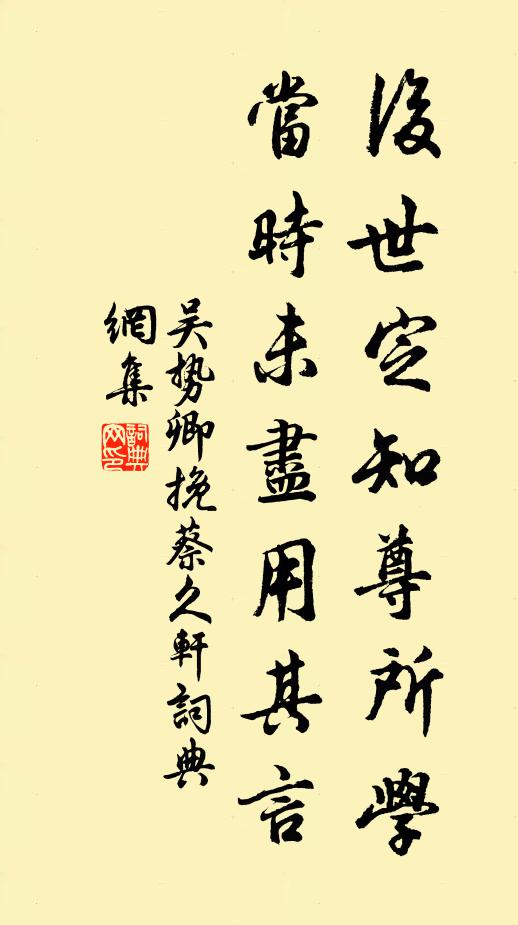 後世定知尊所學
當時未盡用其言
吳勢卿挽蔡久軒詞典
網集
詞典
网印